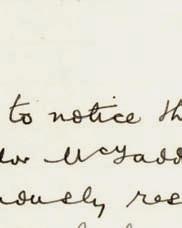 to notice th
dor McGadd
ously res